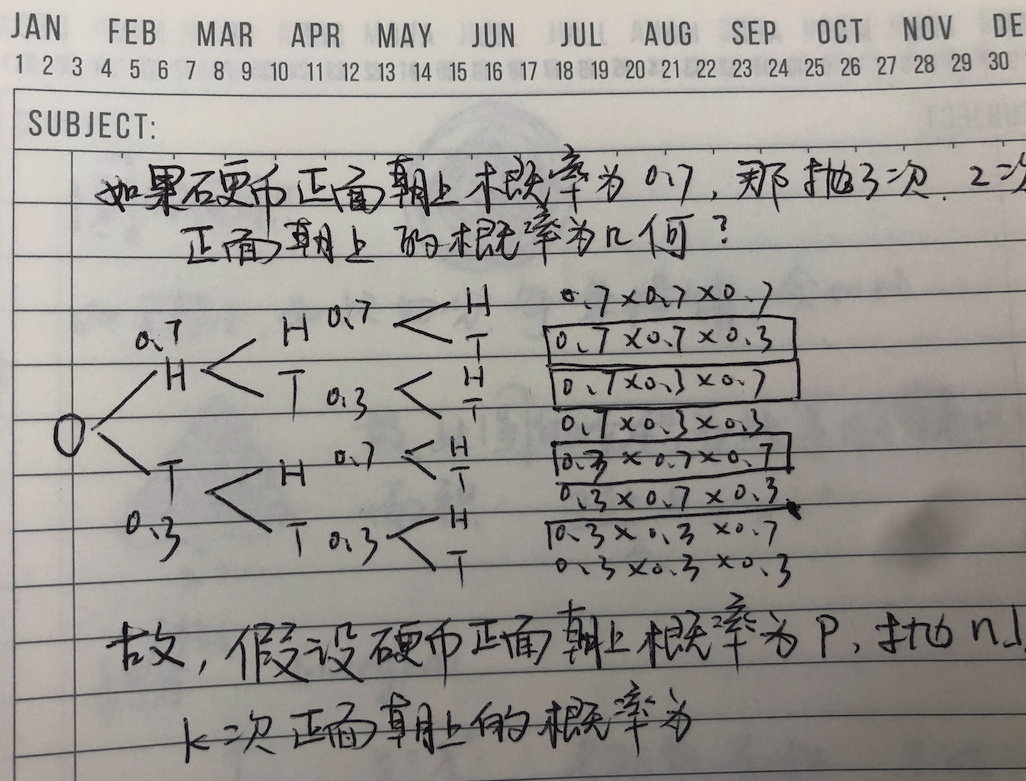 JAN FEB MAR APR MAY JUN JUL AUG SEP OCT NOV DE
1 2 3 4 5 6 7 8 9 10 11 12 13 14 15 16 17 18 19 20 21 22 23 24 25 26 27 28 29 30
SUBJECT:
如果硬币正面朝上概率为 0.7, 那抛3次. 2次
正面朝上的概率为几何?
H 0.7×0.7×0.7
0.7 H 0.7 T 0.7×0.7×0.3
H T 0.3 H 0.7×0.3×0.7
T 0.7×0.3×0.3
0 H 0.7 H 0.3×0.7×0.7
T T 0.3×0.7×0.3
0.3 T 0.3 H 0.3×0.3×0.7
T 0.3×0.3×0.3
故, 假设硬币正面朝上概率为 P, 抛 n
k次正面朝上的概率为